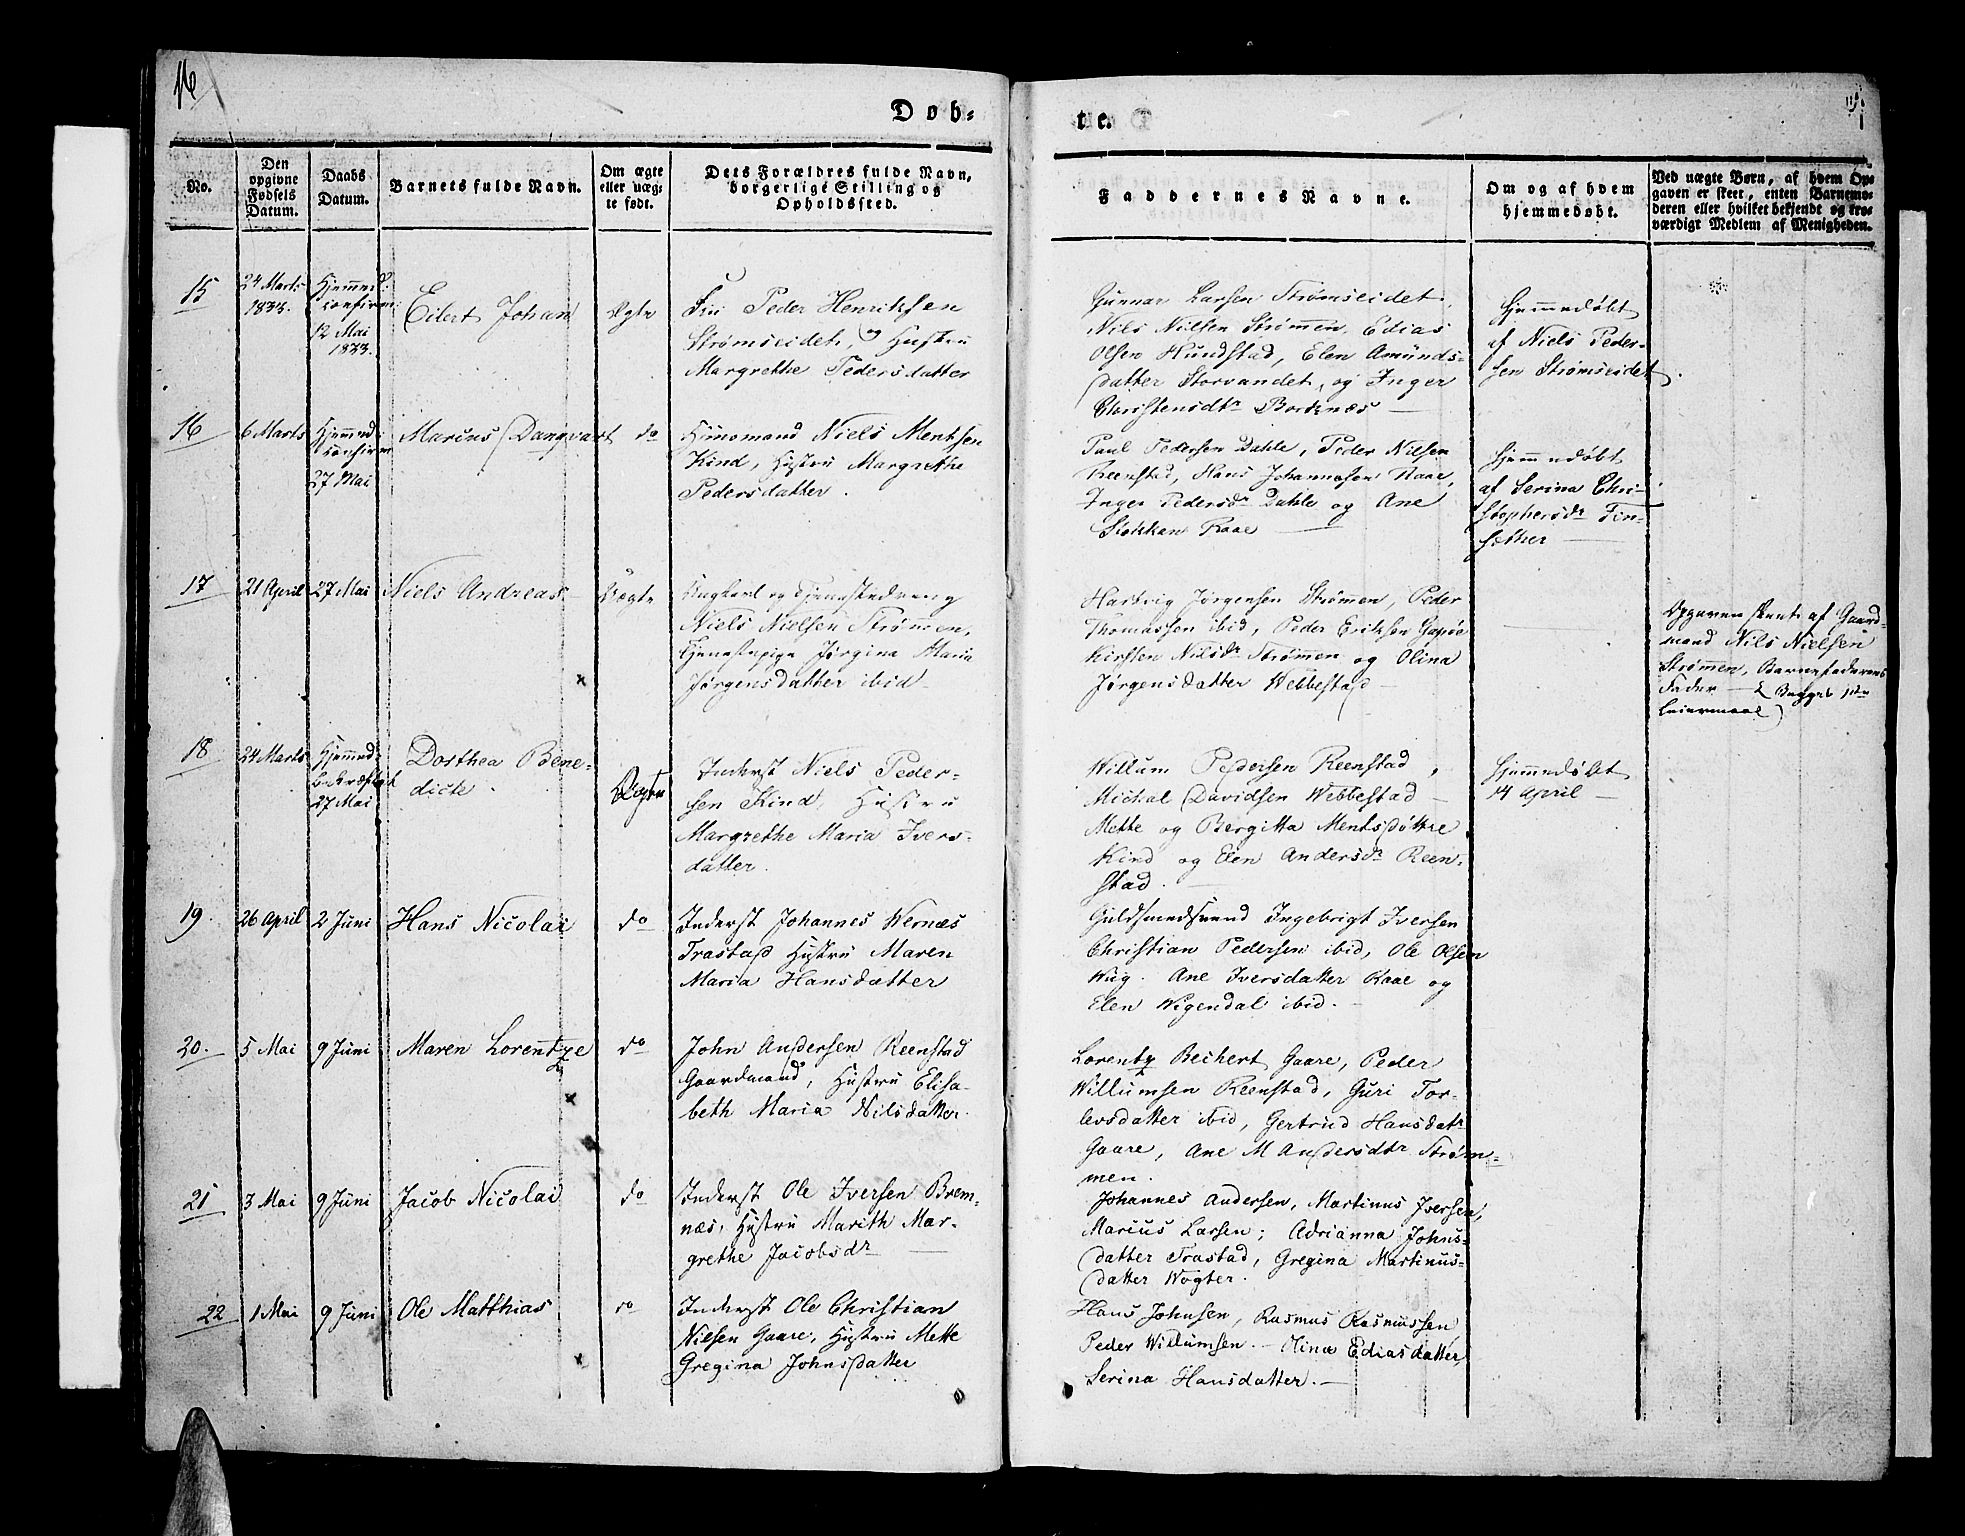 16
Døb=
te.
No.
Den
opgivne
Fødsels
Datum.
Daabs
Datum.
Barnets fulde Navn.
Om ægte
eller uæg-
te født.
Dets Forældres fulde Navn,
borgerlige Stilling og
Opholdssted.
Faddernes Navne.
Om og af hvem
hjemmedøbt.
Ved uægte Børn, af hvem Op-
gaven er skeet, enten Barnemo-
deren eller hvilket bekjendt og tro-
værdigt Medlem af Menigheden.
15
24 Marts
1833.
Hjemmed:
confirm:
12 Mai
1833.
Eilert Johan
Ægte
Peder Henriksen
Strømseidet, og Hustru
Margrethe Pedersdatter
Gunnar Larsen Strømseidet,
Nils Nielsen Strømmen, Edias
Olsen Hundstad, Elen Amunds-
datter Storvandet, og Inger
Christensdtr Borknæs —
Hjemmedøbt
af Niels Peder-
sen Strømseidet.
16
6 Marts
Hjemmed:
confirm
27 Mai
Marius Dangvart
do
Huusmand Niels Mentsen
Kind, Hustru Margrethe
Pedersdatter.
Paul Pedersen Dahle, Peder Nilsen
Reenstad, Hans Johannesen Raae,
Inger Pedersdr Dahle og Ane
Stokkan Raae —
Hjemmedøbt
af Serina Chri-
stophersdr Fin-
sæther —
17
21 April
27 Mai
Niels Andreas
Uægte
Ungkarl og Tjenestedreng
Niels Nielsen Strømmen,
Tjenestepige Jørgina Maria
Jørgensdatter ibid
Hartvig Jørgensen Strømmen, Peder
Thomassen ibid, Peder Eriksen Gapøe
Kirsten Nilsdr Strømmen og Olina
Jørgensdatter Webbestad —
Opgaven skeet af Gaard-
mand Nils Nielsen
Strømmen, Barnefaderens
Fader — (Begges 1ste
Leiermaal)
18
24 Marts
Hjemmed:
Bekræftet
27 Mai
Dorthea Bene-
dicte.
Ægte
Inderst Niels Peder-
sen Kind, Hustru
Margrethe Maria Ivers-
datter.
Willum Pedersen Reenstad,
Michal Davidsen Webbestad —
Mette og Bergitta Mentsdøttre
Kind og Elen Andersdr Reen-
stad. —
Hjemmedøbt
14 April —
19.
26 April
2 Juni
Hans Nicolai
do
Inderst Johannes Wernæs
Trastad Hustru Maren
Maria Hansdatter
Guldsmedsvend Ingebrigt Iversen
Christian Pedersen ibid, Ole Olsen
Wug. Ane Iversdatter Raae og
Elen Wigendal ibid. —
20.
5 Mai
9 Juni
Maren Lorentze
do
John Andersen Reenstad
Gaardmand, Hustru Elisa-
beth Maria Nilsdatter.
Lorentz Beichert Gaare, Peder
Willumsen Reenstad, Guri Tor-
levsdatter ibid, Gertrud Hansdatr
Gaare, Ane M Andersdtr Strøm-
men.
21
3 Mai
9 Juni
Jacob Nicolai
do
Inderst Ole Iversen Brem-
næs, Hustru Marith Mar-
grethe Jacobsdr —
Johannes Andersen, Martinus Iversen,
Marius Larsen; Adrianna Johns-
datter Trastad, Gregina Martinus-
datter Wogter.
22
1 Mai
9 Juni
Ole Matthias
do
Inderst Ole Christian
Nielsen Gaare, Hustru Mette
Gregina Johnsdatter
Hans Johnsen, Rasmus Rasmussen
Peder Willumsen. — Edias datter,
Serina Hansdatter. —